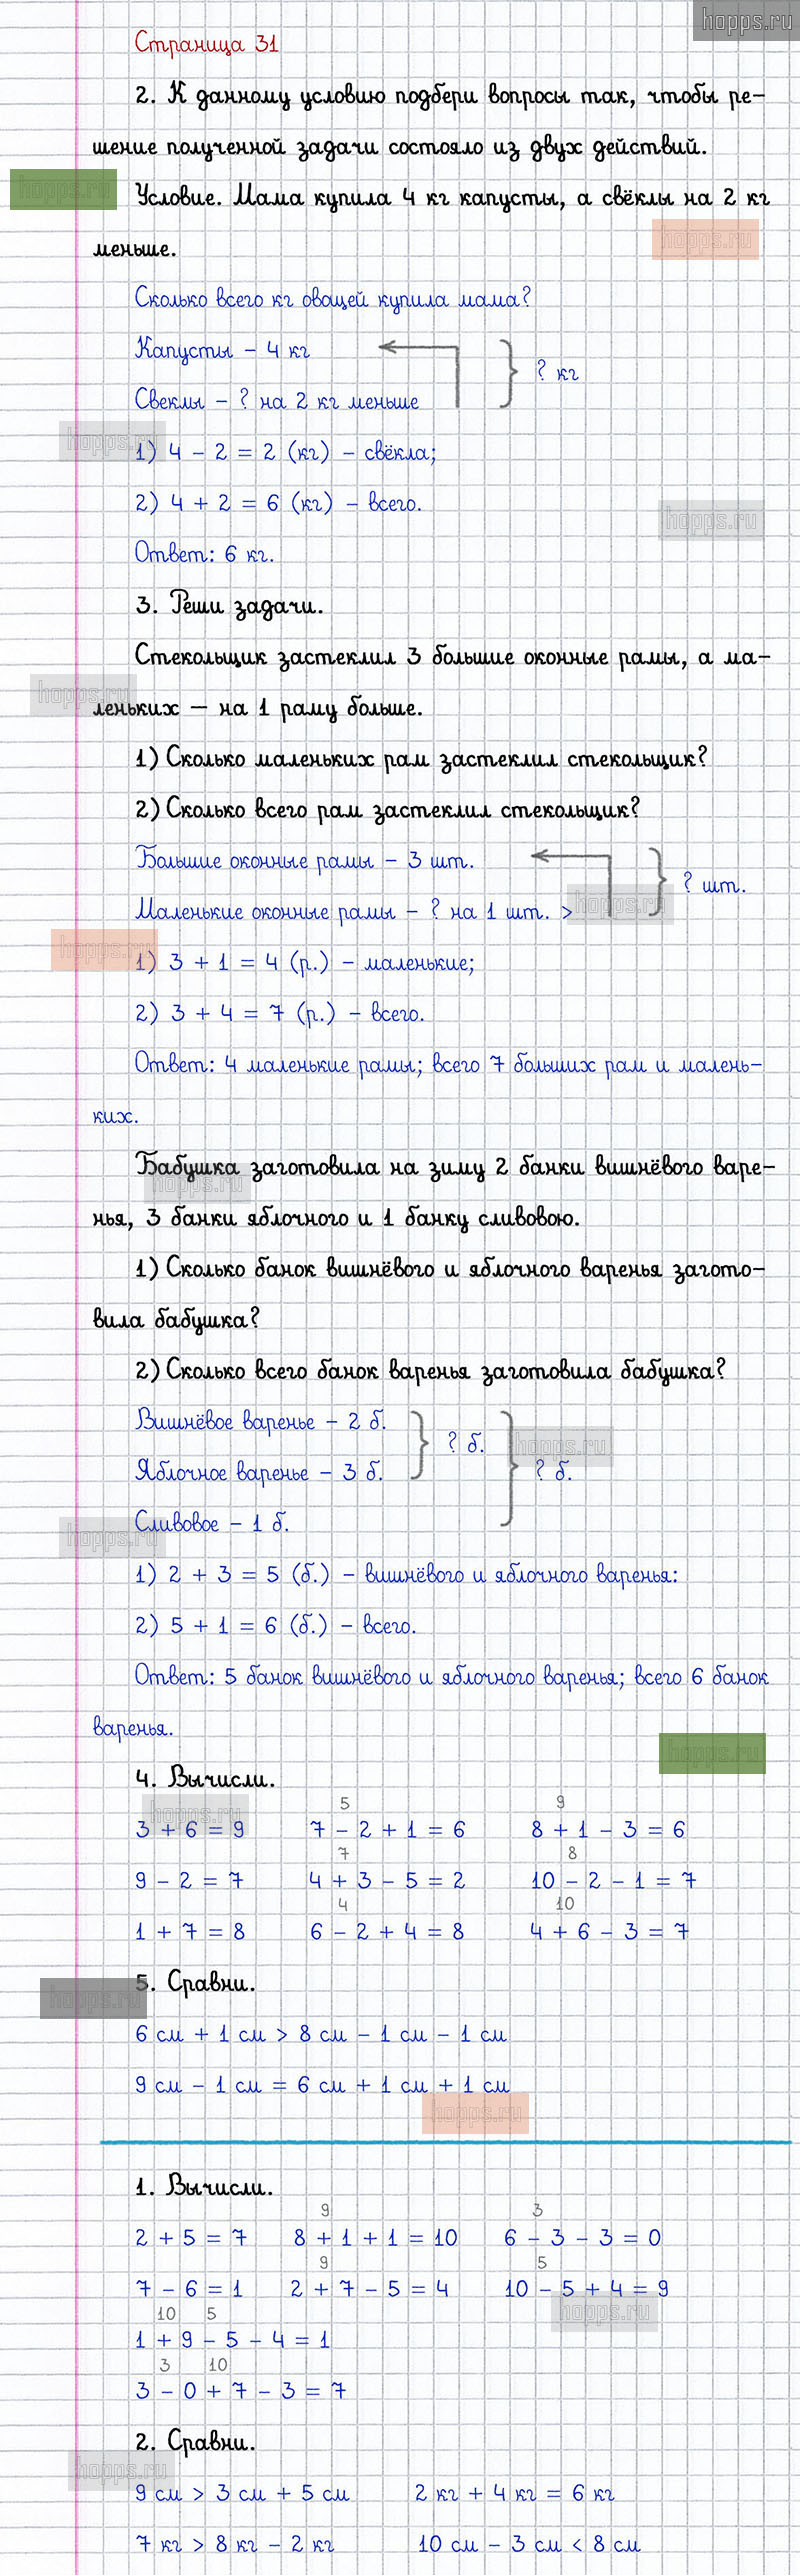 hopps.ru
Страница 31
2. К данному условию подбери вопросы так, чтобы ре-
шение полученной задачи состояло из двух действий.
hopps.ru
Условие. Мама купила 4 кг капусты, а свёклы на 2 кг
меньше.
hopps.ru
Сколько всего кг овощей купила мама?
Капусты – 4 кг
? кг
Свеклы – ? на 2 кг меньше
hopps.ru
1) 4 – 2 = 2 (кг) – свёкла;
2) 4 + 2 = 6 (кг) – всего.
hopps.ru
Ответ: 6 кг.
3. Реши задачи.
Стекольщик застеклил 3 большие оконные рамы, а ма-
hopps.ru
леньких – на 1 раму больше.
1) Сколько маленьких рам застеклил стекольщик?
2) Сколько всего рам застеклил стекольщик?
Большие оконные рамы – 3 шт.
? шт.
Маленькие оконные рамы – ? на 1 шт. >
hopps.ru
hopps.ru
1) 3 + 1 = 4 (р.) – маленькие;
2) 3 + 4 = 7 (р.) – всего.
Ответ: 4 маленькие рамы; всего 7 больших рам и малень-
ких.
Бабушка заготовила на зиму 2 банки вишнёвого варе-
hopps.ru
нья, 3 банки яблочного и 1 банку сливовою.
1) Сколько банок вишнёвого и яблочного варенья загото-
вила бабушка?
2) Сколько всего банок варенья заготовила бабушка?
Вишнёвое варенье – 2 б.
? б.
hopps.ru
Яблочное варенье – 3 б.
? б.
Сливовое – 1 б.
hopps.ru
1) 2 + 3 = 5 (б.) – вишнёвого и яблочного варенья:
2) 5 + 1 = 6 (б.) – всего.
Ответ: 5 банок вишнёвого и яблочного варенья; всего 6 банок
варенья.
hopps.ru
4. Вычисли.
hopps.ru
5 9
3 + 6 = 9 7 – 2 + 1 = 6 8 + 1 – 3 = 6
7 8
9 – 2 = 7 4 + 3 – 5 = 2 10 – 2 – 1 = 7
4 10
1 + 7 = 8 6 – 2 + 4 = 8 4 + 6 – 3 = 7
5. Сравни.
hopps.ru
6 см + 1 см > 8 см – 1 см – 1 см
9 см – 1 см = 6 см + 1 см + 1 см
hopps.ru
1. Вычисли.
9 3
2 + 5 = 7 8 + 1 + 1 = 10 6 – 3 – 3 = 0
9 5
7 – 6 = 1 2 + 7 – 5 = 4 10 – 5 + 4 = 9
hopps.ru
10 5
1 + 9 – 5 – 4 = 1
3 10
3 – 0 + 7 – 3 = 7
2. Сравни.
hopps.ru
9 см > 3 см + 5 см 2 кг + 4 кг = 6 кг
7 кг > 8 кг – 2 кг 10 см – 3 см < 8 см